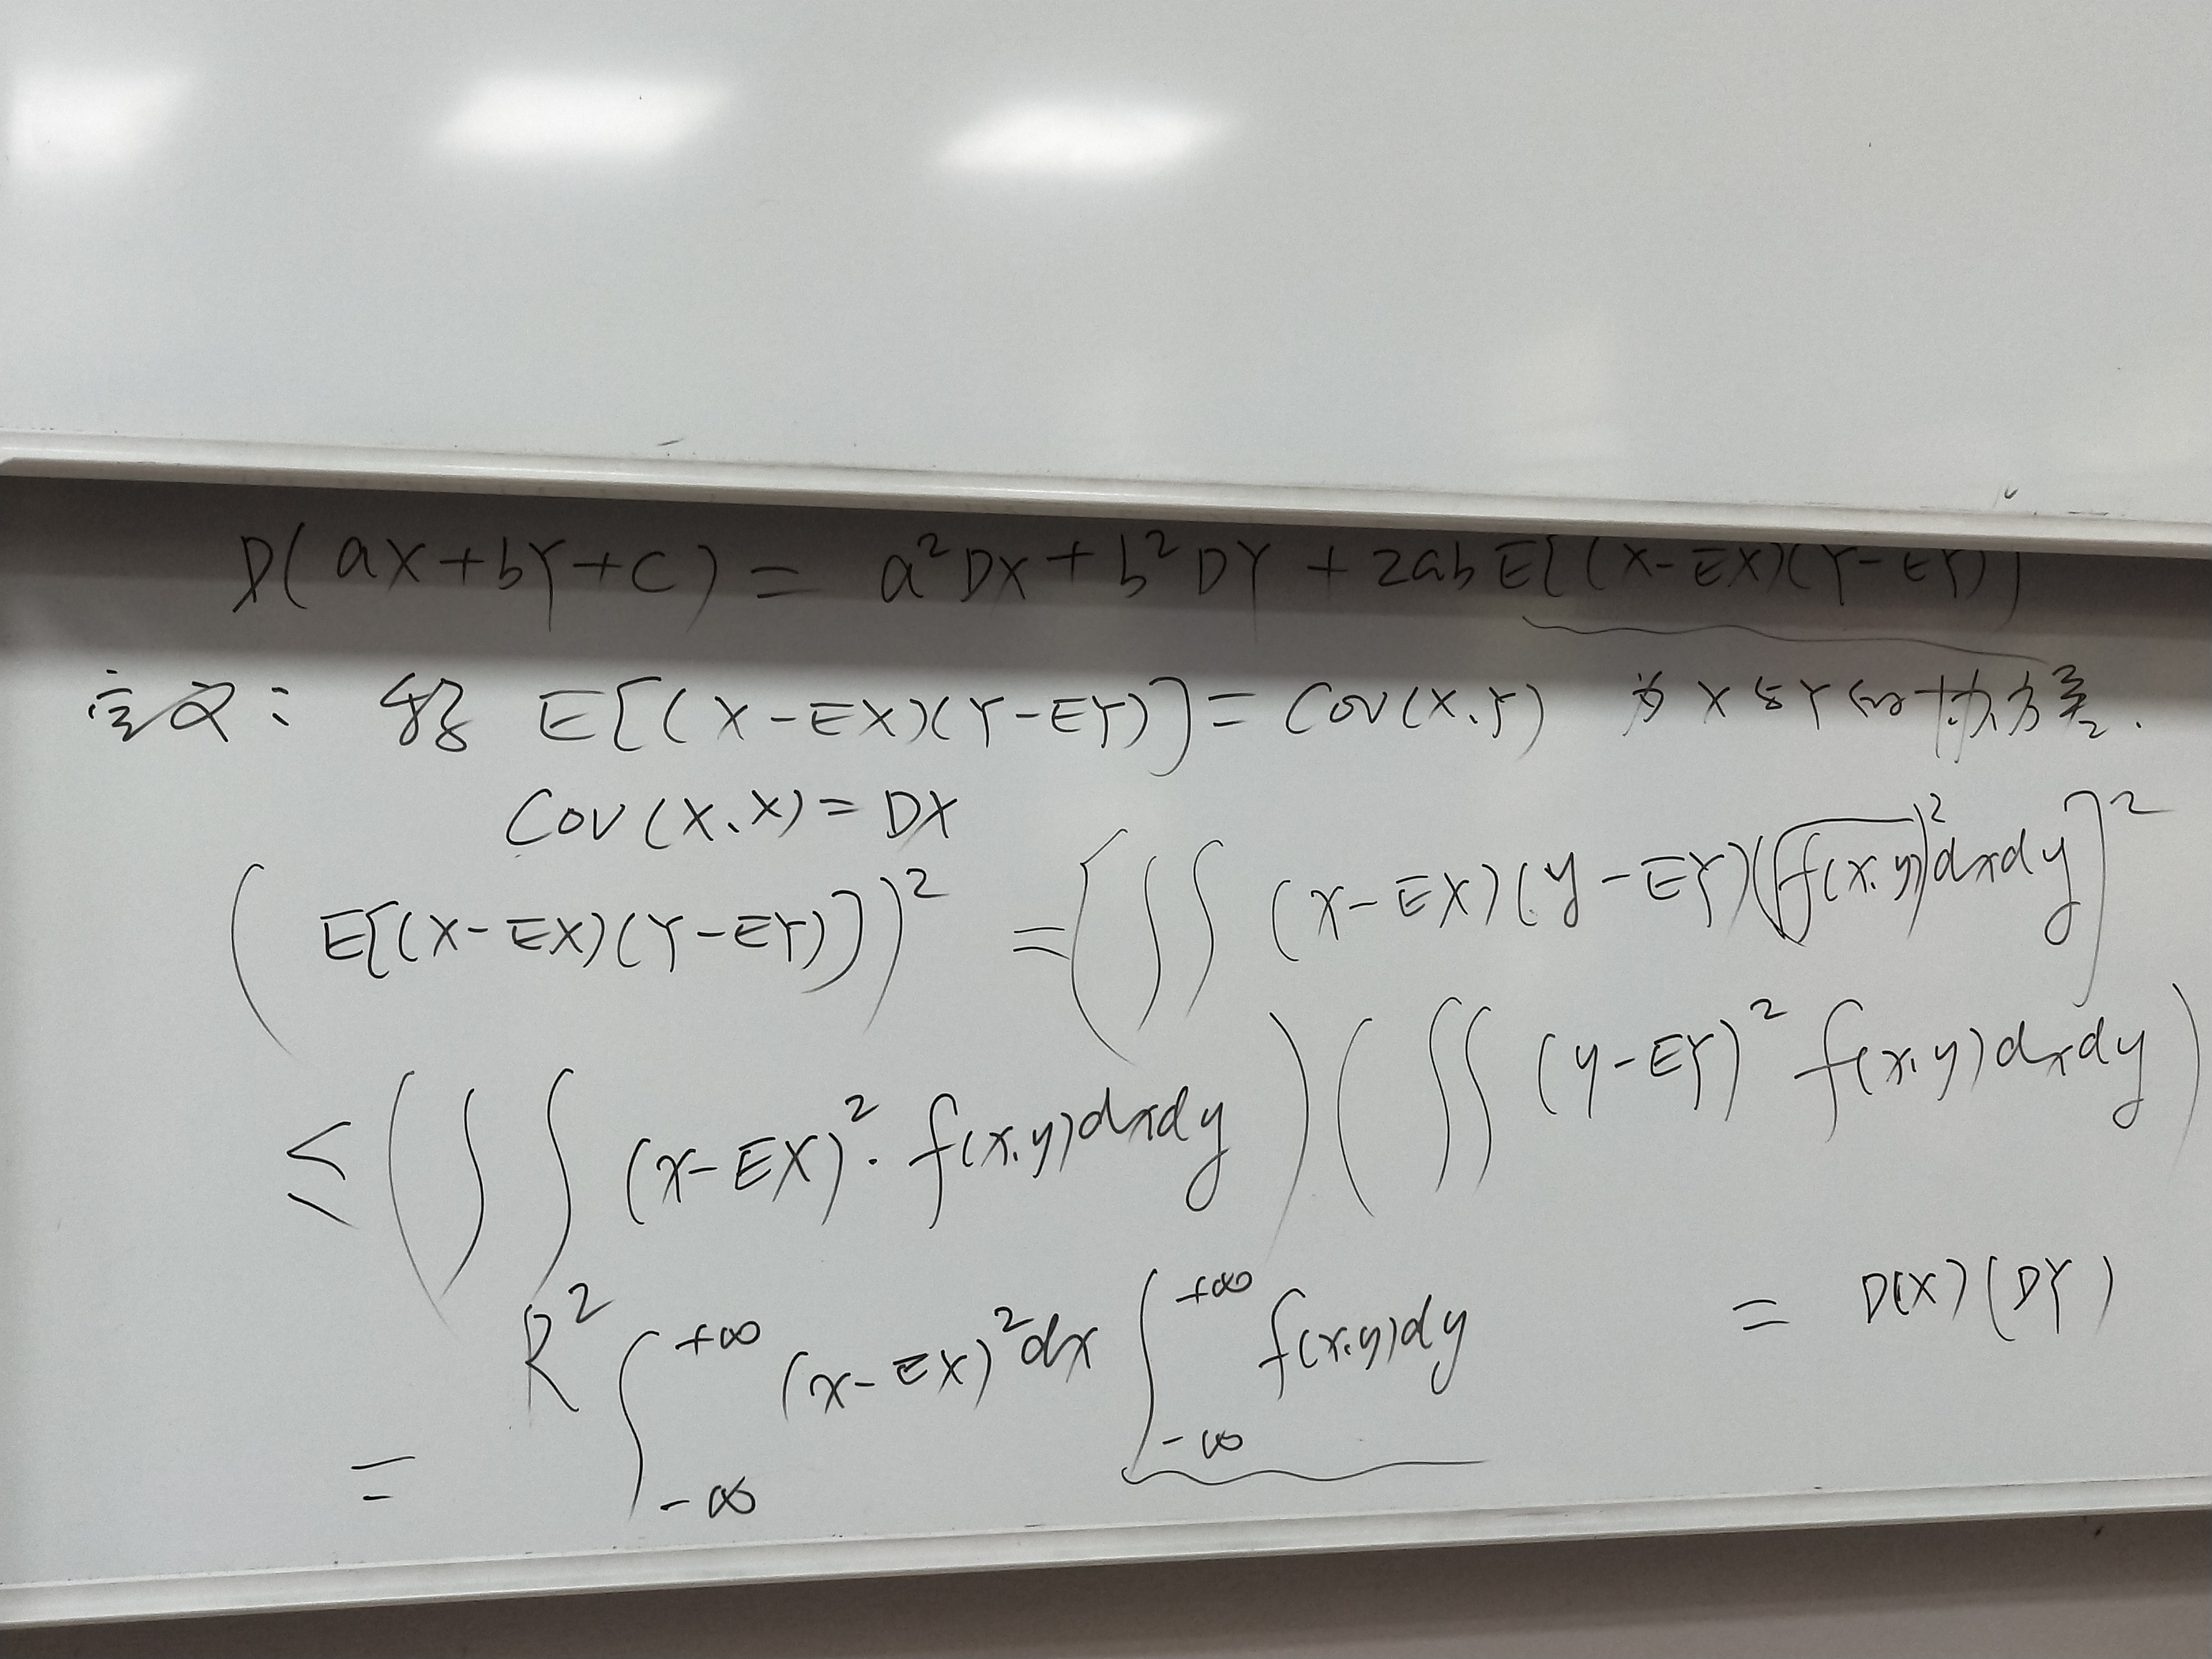 D(aX+bY+C) = a²DX + b²DY + 2abE[(X-EX)(Y-EY)]
定义: 称 E[(X-EX)(Y-EY)] = Cov(X.Y) 为 X 与 Y 的协方差.
Cov(X.X) = DX
(E[(X-EX)(Y-EY)])² = [∬ (x-EX)(y-EY)(√f(x.y))² dxdy]²
≤ (∬ (x-EX)². f(x.y)dxdy) (∬ (y-EY)² f(x.y)dxdy)
R²
= ∫_{-∞}^{+∞} (x-EX)²dx ∫_{-∞}^{+∞} f(x.y)dy = D(X)(DY)